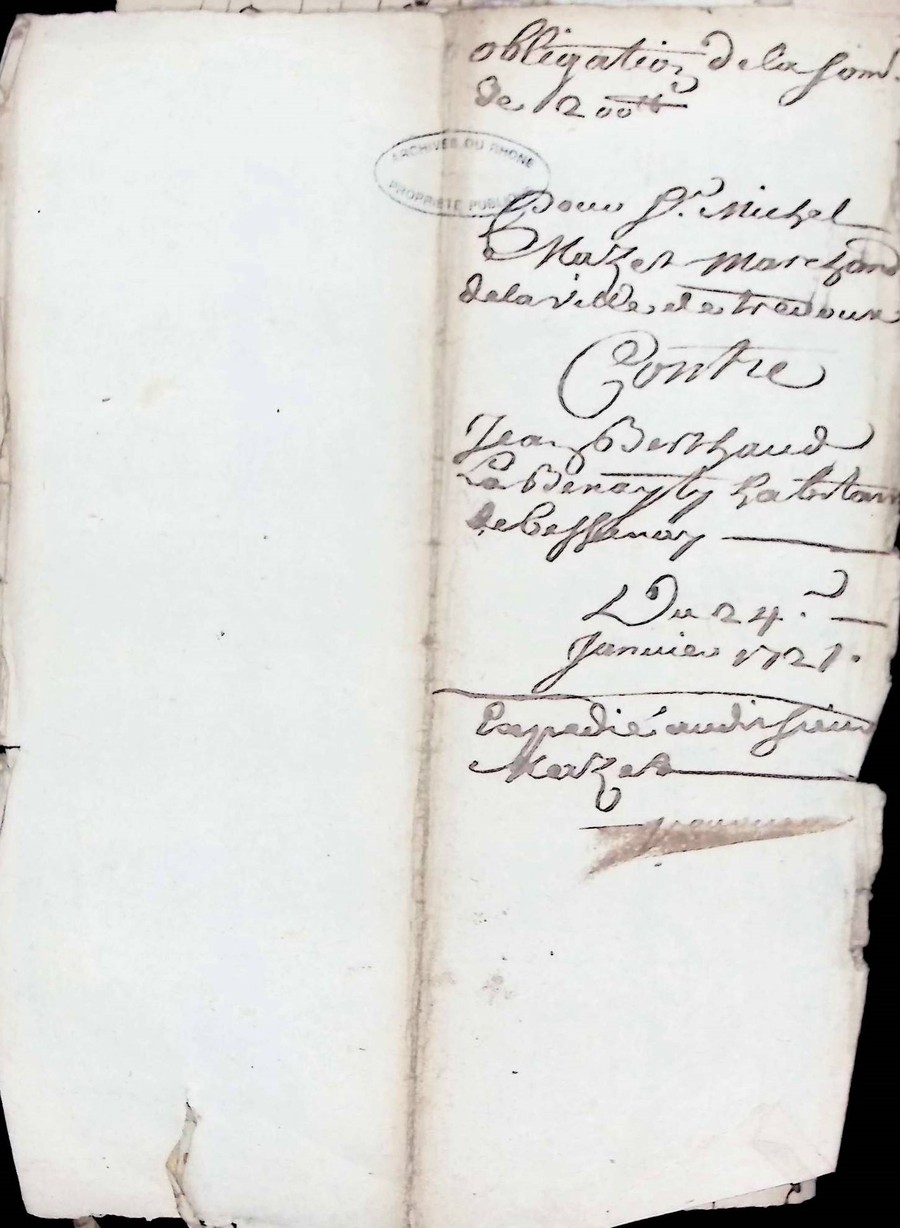 obligation de la som.
de 200 ₶
ARCHIVES DU RHONE
PROPRIÉTÉ PUBLIQUE
Pour Sr. Michel
Mazet marchand
de la ville de trevoux
Contre
Jean Berthaud
habitan
de Bessenay
Du 24.e
Janvier 1721.
Expedié audit sieur
Mazet